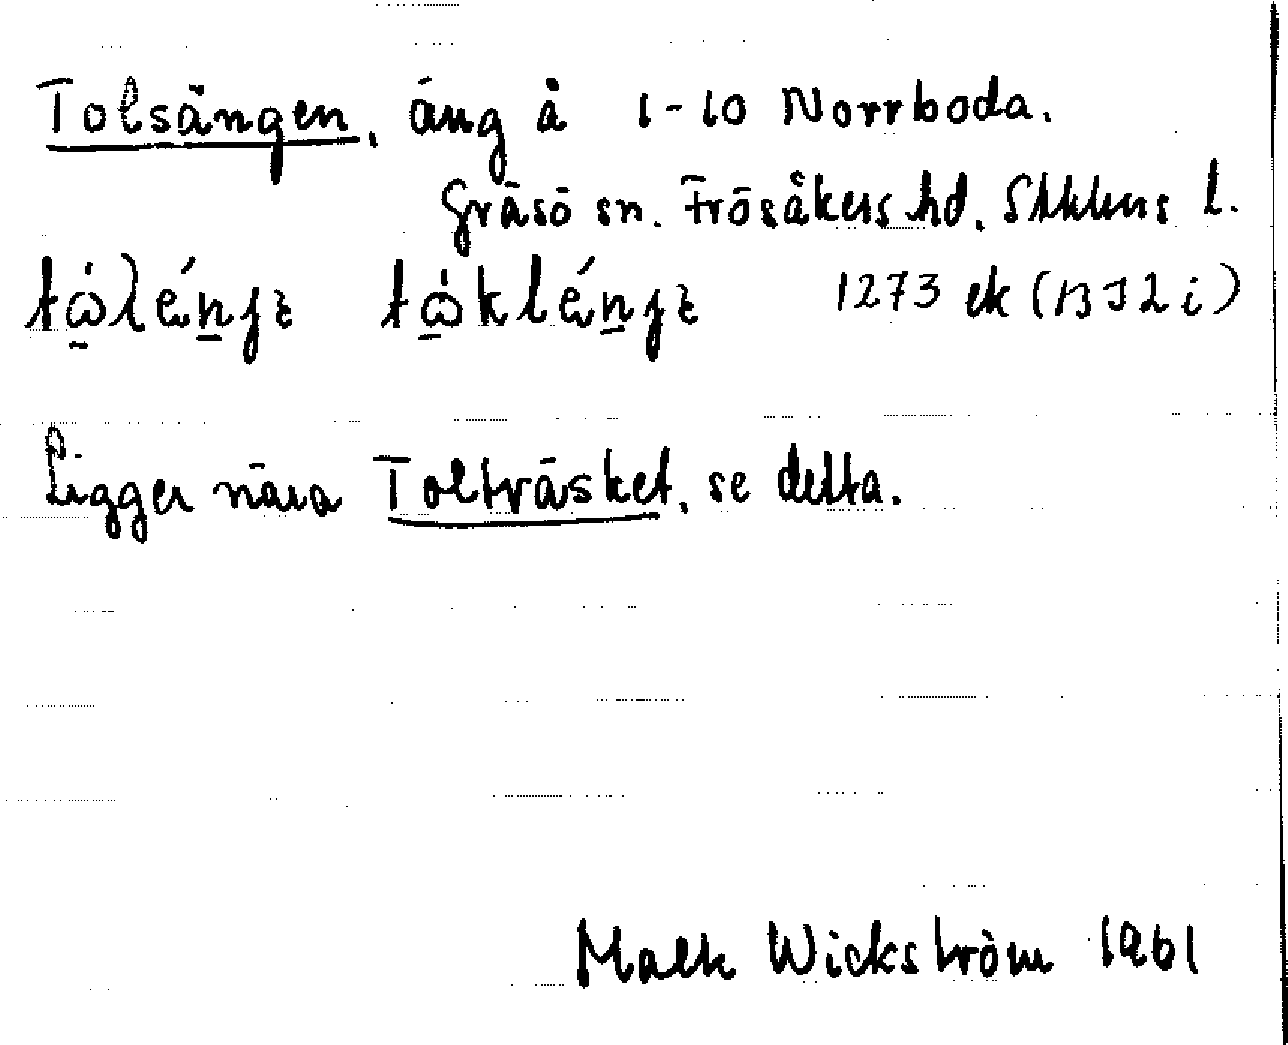 Tolsängen, äng å 1-10 Norrboda.
Gräsö sn. Frösåkers hd. Sthlms l.
1273 ek (13 I 2 i)
Ligger nära Tolträsket, se detta.
Wickström 1961